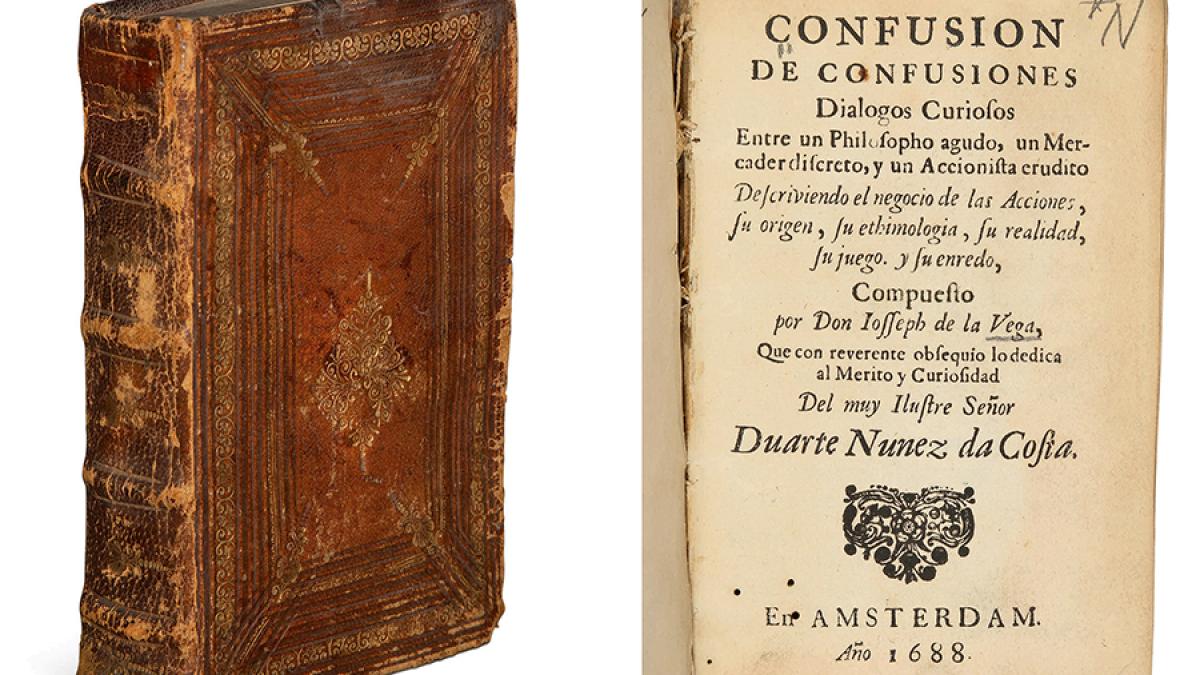 N
CONFUSION
DE CONFUSIONES
Dialogos Curioſos
Entre un Philoſopho agudo, un Mer-
cader diſcreto, y un Accioniſta erudito
Deſcriviendo el negocio de las Acciones,
ſu origen, ſu ethimologia, ſu realidad,
ſu juego. y ſu enredo,
Compueſto
por Don Ioſſeph de la Vega,
Que con reverente obſequio lo dedica
al Merito y Curioſidad
Del muy Iluſtre Señor
Duarte Nunez da Coſta.
En AMSTERDAM.
Año 1688.